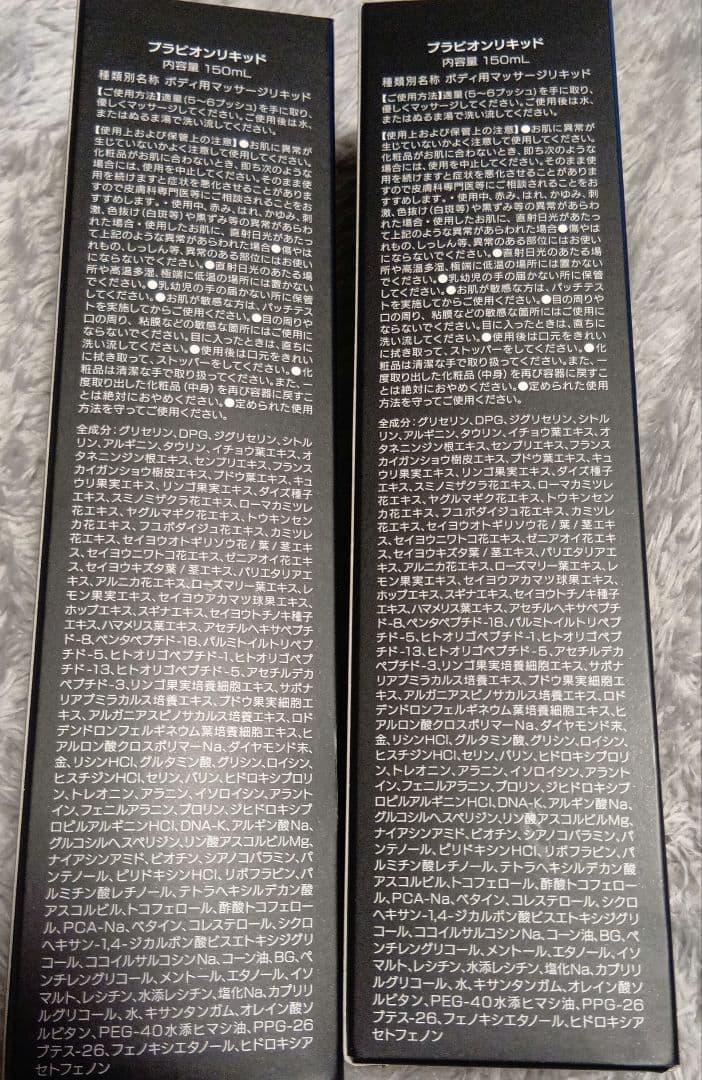 ブラビオンリキッド
内容量 150mL
種類別名称 ボディ用マッサージリキッド
【ご使用方法】適量(5〜6プッシュ)を手に取り、
優しくマッサージしてください。ご使用後は水、
またはぬるま湯で洗い流してください。
【使用上および保管上の注意】●お肌に異常が
生じていないかよく注意して使用してください。
化粧品がお肌に合わないとき、即ち次のような
場合には、使用を中止してください。そのまま使用
を続けますと症状を悪化させることがありま
すので皮膚科専門医等にご相談されることをお
すすめします。・使用中、赤み、はれ、かゆみ、刺
激、色抜け(白斑等)や黒ずみ等の異常があらわ
れた場合・使用したお肌に、直射日光があたっ
て上記のような異常があらわれた場合●傷やは
れもの、しっしん等、異常のある部位にはお使い
にならないでください。●直射日光のあたる場
所や高温多湿、極端に低温の場所には置かない
でください。●乳幼児の手の届かない所に保管
してください。●お肌が敏感な方は、パッチテス
トを実施してからご使用ください。●目の周りや
口の周り、粘膜などの敏感な箇所にはご使用に
ならないでください。目に入ったときは、直ちに
洗い流してください。●使用後は口元をきれい
に拭き取って、ストッパーをしてください。●化
粧品は清潔な手で取り扱ってください。また、一
度取り出した化粧品(中身)を再び容器に戻すこ
とは絶対におやめください。●定められた使用
方法を守ってご使用ください。
全成分:グリセリン、DPG、ジグリセリン、シトル
リン、アルギニン、タウリン、イチョウ葉エキス、オ
タネニンジン根エキス、センブリエキス、フランス
カイガンショウ樹皮エキス、ブドウ葉エキス、キュ
ウリ果実エキス、リンゴ果実エキス、ダイズ種子
エキス、スミノミザクラ花エキス、ローマカミツレ
花エキス、ヤグルマギク花エキス、トウキンセン
カ花エキス、フユボダイジュ花エキス、カミツレ
花エキス、セイヨウオトギリソウ花/葉/茎エキ
ス、セイヨウニワトコ花エキス、ゼニアオイ花エキ
ス、セイヨウキズタ葉/茎エキス、パリエタリアエ
キス、アルニカ花エキス、ローズマリー葉エキス、レ
モン果実エキス、セイヨウアカマツ球果エキス、
ホップエキス、スギナエキス、セイヨウトチノキ種子
エキス、ハマメリス葉エキス、アセチルヘキサペプチ
ド-8、ペンタペプチド-18、パルミトイルトリペプ
チド-5、ヒトオリゴペプチド-1、ヒトオリゴペプ
チド-13、ヒトオリゴペプチド-5、アセチルデカ
ペプチド-3、リンゴ果実培養細胞エキス、サポナ
リアプミラカルス培養エキス、ブドウ果実培養細胞
エキス、アルガニアスピノサカルス培養エキス、ロド
デンドロンフェルギネウム葉培養細胞エキス、ヒ
アルロン酸クロスポリマーNa、ダイヤモンド末、
金、リシンHCl、グルタミン酸、グリシン、ロイシン、
ヒスチジンHCl、セリン、バリン、ヒドロキシプロリ
ン、トレオニン、アラニン、イソロイシン、アラント
イン、フェニルアラニン、プロリン、ジヒドロキシプ
ロピルアルギニンHCl、DNA-K、アルギン酸Na、
グルコシルヘスペリジン、リン酸アスコルビルMg、
ナイアシンアミド、ビオチン、シアノコバラミン、パ
ンテノール、ピリドキシンHCl、リボフラビン、パ
ルミチン酸レチノール、テトラヘキシルデカン酸
アスコルビル、トコフェロール、酢酸トコフェロー
ル、PCA-Na、ベタイン、コレステロール、シクロ
ヘキサン-1,4-ジカルボン酸ビスエトキシジグリ
コール、ココイルサルコシンNa、コーン油、BG、ペ
ンチレングリコール、メントール、エタノール、イソ
マルト、レシチン、水添レシチン、塩化Na、カプリリ
ルグリコール、水、キサンタンガム、オレイン酸ソ
ルビタン、PEG-40水添ヒマシ油、PPG-26
ブテス-26、フェノキシエタノール、ヒドロキシア
セトフェノン
ブラビオンリキッド
内容量 150mL
種類別名称 ボディ用マッサージリキッド
【ご使用方法】適量(5〜6プッシュ)を手に取り、
優しくマッサージしてください。ご使用後は水、
またはぬるま湯で洗い流してください。
【使用上および保管上の注意】●お肌に異常が
生じていないかよく注意して使用してください。
化粧品がお肌に合わないとき、即ち次のような
場合には、使用を中止してください。そのまま使用
を続けますと症状を悪化させることがありま
すので皮膚科専門医等にご相談されることをお
すすめします。・使用中、赤み、はれ、かゆみ、刺
激、色抜け(白斑等)や黒ずみ等の異常があらわ
れた場合・使用したお肌に、直射日光があたっ
て上記のような異常があらわれた場合●傷やは
れもの、しっしん等、異常のある部位にはお使い
にならないでください。●直射日光のあたる場
所や高温多湿、極端に低温の場所には置かない
でください。●乳幼児の手の届かない所に保管
してください。●お肌が敏感な方は、パッチテス
トを実施してからご使用ください。●目の周りや
口の周り、粘膜などの敏感な箇所にはご使用に
ならないでください。目に入ったときは、直ちに
洗い流してください。●使用後は口元をきれい
に拭き取って、ストッパーをしてください。●化
粧品は清潔な手で取り扱ってください。また、一
度取り出した化粧品(中身)を再び容器に戻すこ
とは絶対におやめください。●定められた使用
方法を守ってご使用ください。
全成分:グリセリン、DPG、ジグリセリン、シトル
リン、アルギニン、タウリン、イチョウ葉エキス、オ
タネニンジン根エキス、センブリエキス、フランス
カイガンショウ樹皮エキス、ブドウ葉エキス、キュ
ウリ果実エキス、リンゴ果実エキス、ダイズ種子
エキス、スミノミザクラ花エキス、ローマカミツレ
花エキス、ヤグルマギク花エキス、トウキンセン
カ花エキス、フユボダイジュ花エキス、カミツレ
花エキス、セイヨウオトギリソウ花/葉/茎エキ
ス、セイヨウニワトコ花エキス、ゼニアオイ花エキ
ス、セイヨウキズタ葉/茎エキス、パリエタリアエ
キス、アルニカ花エキス、ローズマリー葉エキス、レ
モン果実エキス、セイヨウアカマツ球果エキス、
ホップエキス、スギナエキス、セイヨウトチノキ種子
エキス、ハマメリス葉エキス、アセチルヘキサペプチ
ド-8、ペンタペプチド-18、パルミトイルトリペプ
チド-5、ヒトオリゴペプチド-1、ヒトオリゴペプ
チド-13、ヒトオリゴペプチド-5、アセチルデカ
ペプチド-3、リンゴ果実培養細胞エキス、サポナ
リアプミラカルス培養エキス、ブドウ果実培養細胞
エキス、アルガニアスピノサカルス培養エキス、ロド
デンドロンフェルギネウム葉培養細胞エキス、ヒ
アルロン酸クロスポリマーNa、ダイヤモンド末、
金、リシンHCl、グルタミン酸、グリシン、ロイシン、
ヒスチジンHCl、セリン、バリン、ヒドロキシプロリ
ン、トレオニン、アラニン、イソロイシン、アラント
イン、フェニルアラニン、プロリン、ジヒドロキシプ
ロピルアルギニンHCl、DNA-K、アルギン酸Na、
グルコシルヘスペリジン、リン酸アスコルビルMg、
ナイアシンアミド、ビオチン、シアノコバラミン、パ
ンテノール、ピリドキシンHCl、リボフラビン、パ
ルミチン酸レチノール、テトラヘキシルデカン酸
アスコルビル、トコフェロール、酢酸トコフェロー
ル、PCA-Na、ベタイン、コレステロール、シクロ
ヘキサン-1,4-ジカルボン酸ビスエトキシジグリ
コール、ココイルサルコシンNa、コーン油、BG、ペ
ンチレングリコール、メントール、エタノール、イソ
マルト、レシチン、水添レシチン、塩化Na、カプリリ
ルグリコール、水、キサンタンガム、オレイン酸ソ
ルビタン、PEG-40水添ヒマシ油、PPG-26
ブテス-26、フェノキシエタノール、ヒドロキシア
セトフェノン